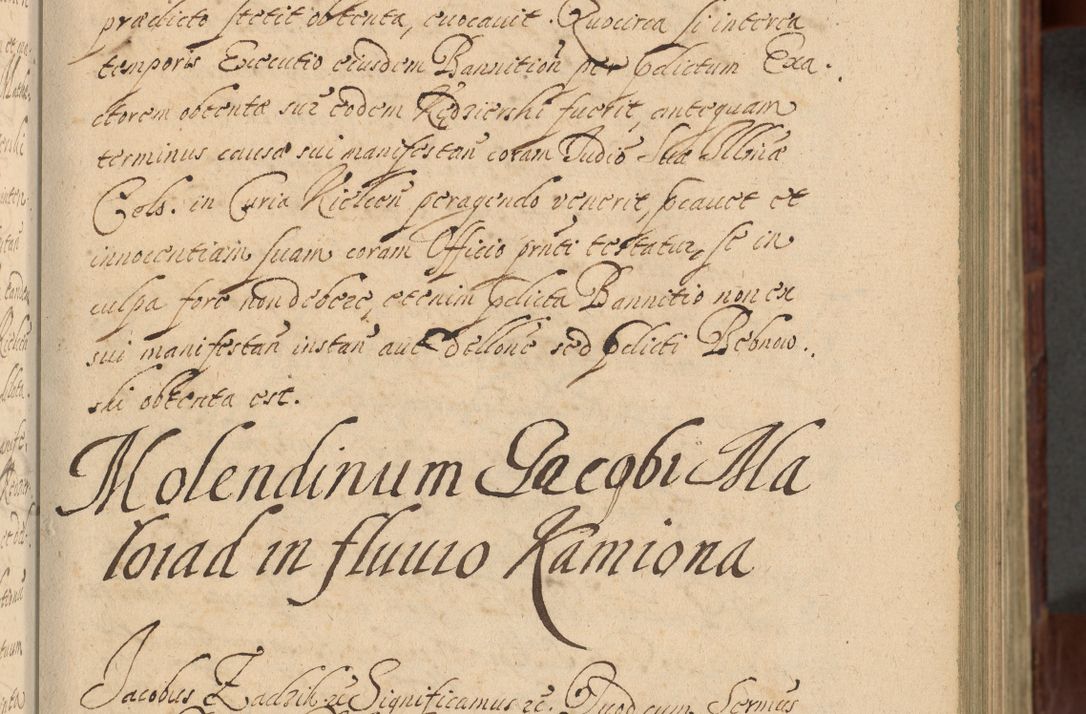 prædicto stetit obtenta, evocavit. Quocirca si interea
temporis Executio eiusdem Bannition per pdictum Exa.
ctorem obtentæ sup eodem Kędzierski fuerit, antequam
terminus causæ sui manifestan coram Judio Suæ Illmæ
Cels. in Curia Kielcen peragendo venerit, peavet et
innocentiam suam coram Officio pnti testatur, se in
culpa fore non debere, etenim pdicta Bannitio non ex
sui manifestan instan aut dellone sed pdicti Rebnow.
ski obtenta est.
Molendinum Jacobi Ma
loiad in fluuio Kamiona
Jacobus Zadzik &c Significamus &c. Quod cum Sermus